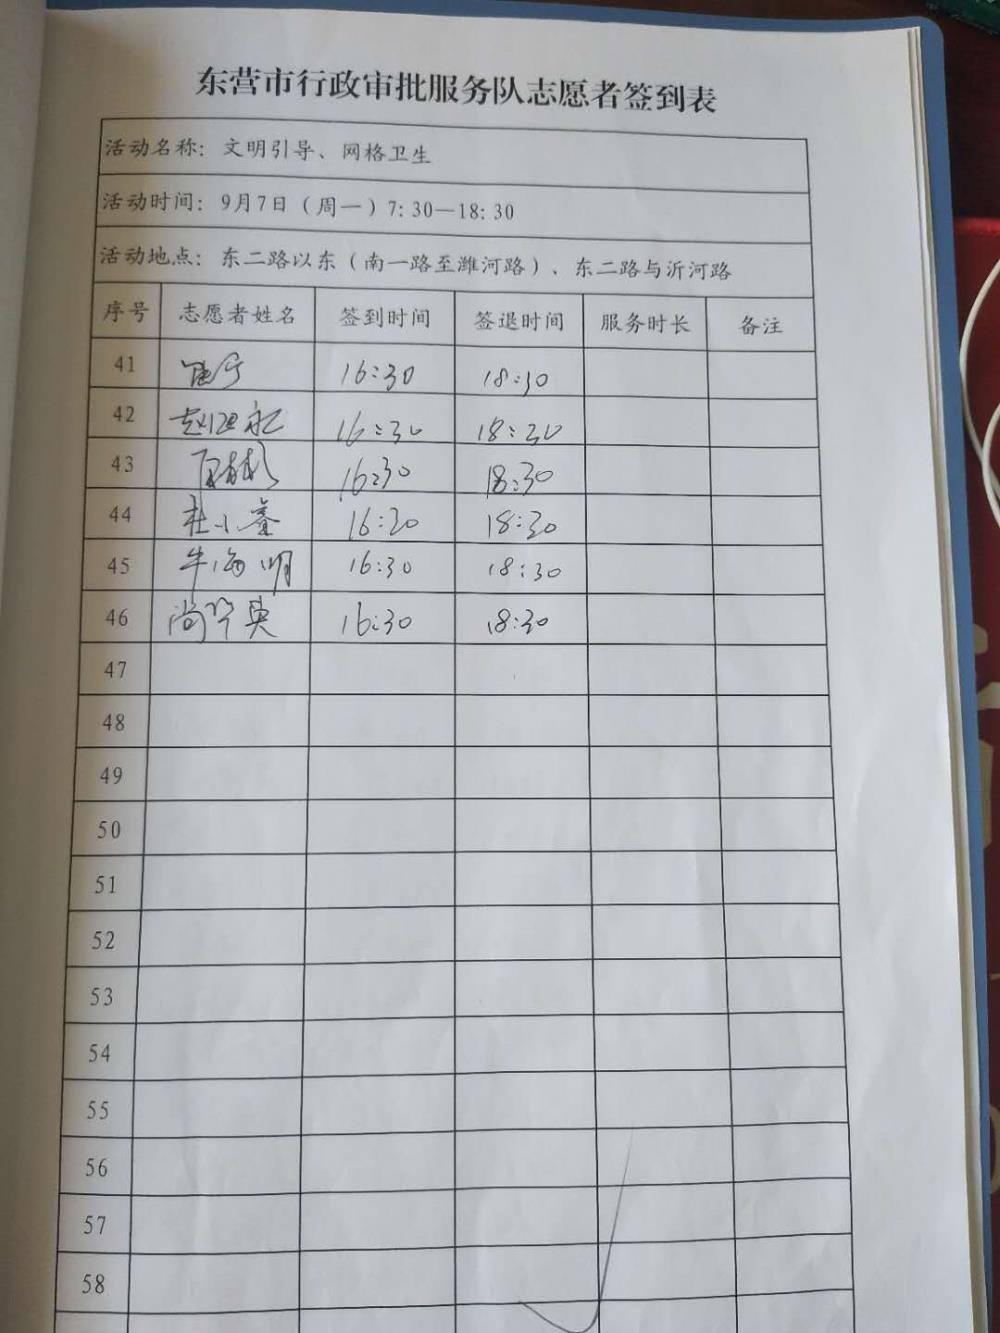 东营市行政审批服务队志愿者签到表
活动名称：文明引导、网格卫生
活动时间：9月7日（周一）7:30—18:30
活动地点：东二路以东（南一路至潍河路）、东二路与沂河路
序号 志愿者姓名 签到时间 签退时间 服务时长 备注
41 16:30 18:30
42 16:30 18:30
43 16:30 18:30
44 杜小睿 16:20 18:30
45 牛海明 16:30 18:30
46 尚华英 16:30 18:30
47
48
49
50
51
52
53
54
55
56
57
58